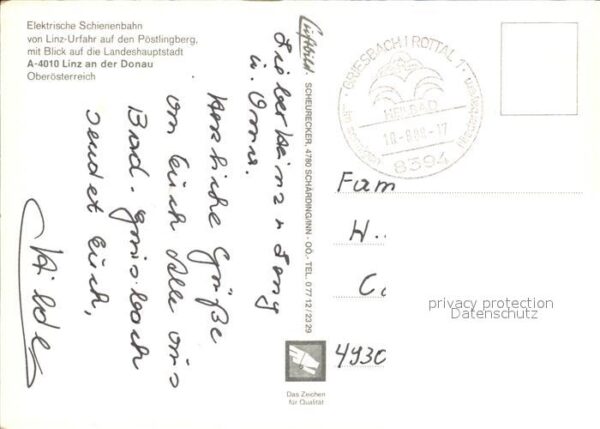 Elektrische Schienenbahn
von Linz-Urfahr auf den Pöstlingberg,
mit Blick auf die Landeshauptstadt
A-4010 Linz an der Donau
Oberösterreich
Lieber Heinz u. Jony
u. Oma.
Herzliche Grüße
an Euch Alle aus
Bad. Griesbach
sendet Euch,
Hilde
Luftbild: SCHEURECKER, 4780 SCHÄRDING/INN - OÖ. - TEL. 0 77 12 / 23 29
GRIESBACH I ROTTAL 1
HEILBAD
-17
8394
Fam
H..
4930
privacy protection
Datenschutz
Das Zeichen
für Qualität